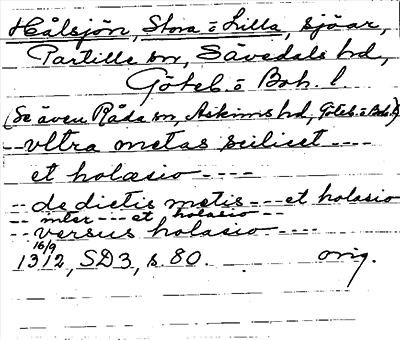 Hålsjön, Stora o Lilla, sjöar,
Partille sn, Sävedals hd,
Göteb. o Boh. l.
(Se även Råda sn, Askims hd, Göteb. o Boh. l)
-- vltra metas scilicet ----
et holæsio ----
-- de dictis metis --- et holasio
-- inter --- et holasio --
-- versus holasio ----
16/9
1312, SD3, s. 80. orig.